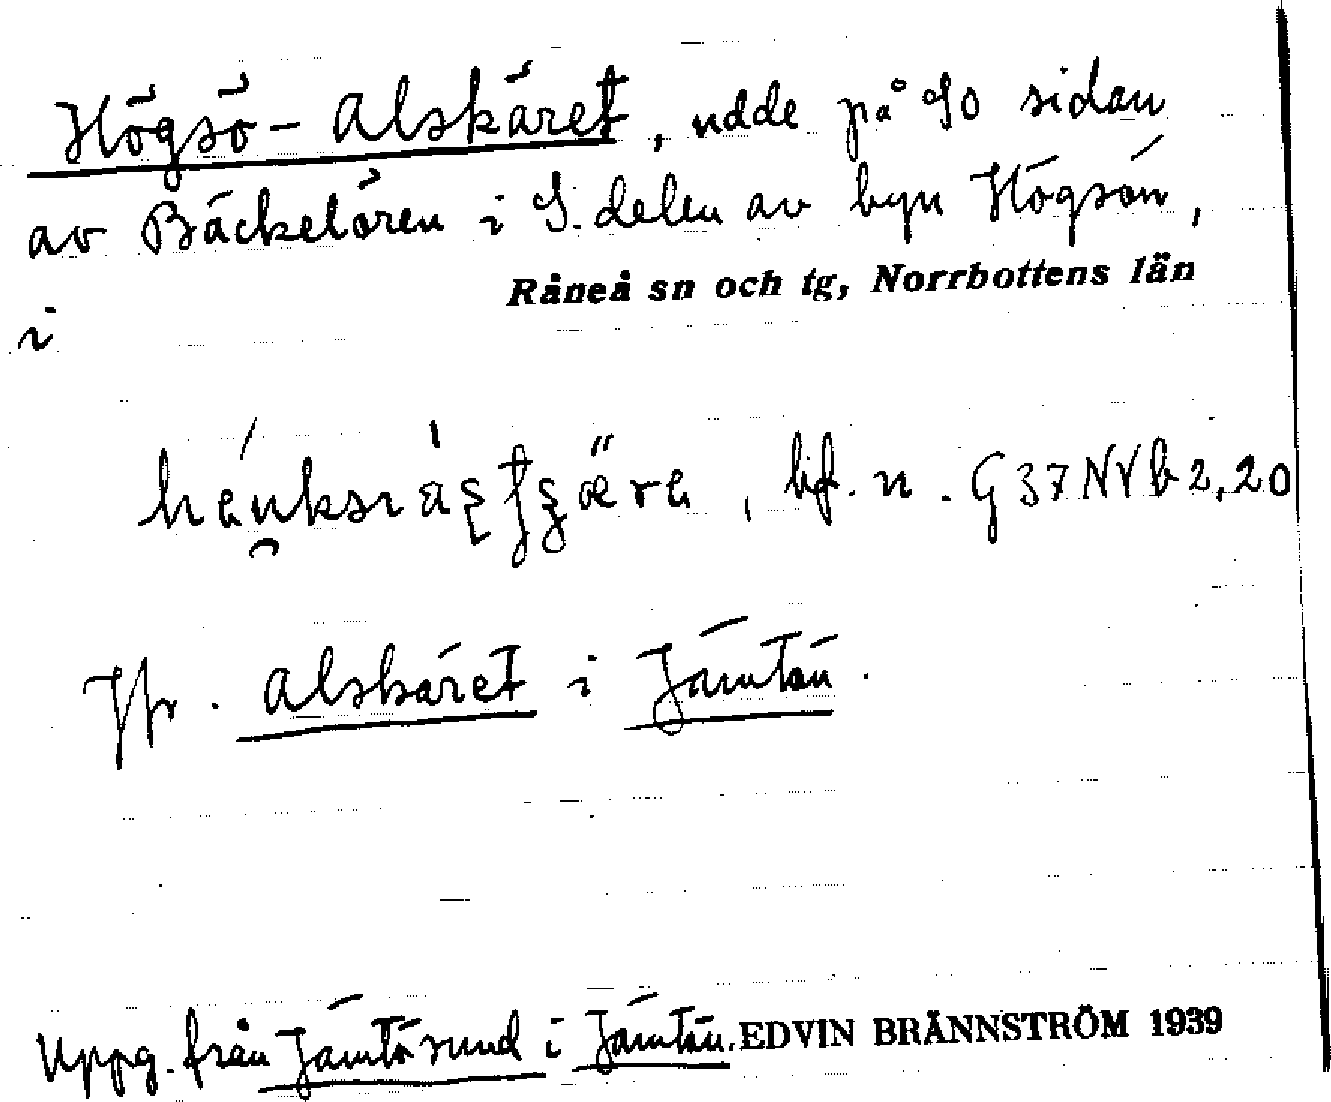 Högsö-Alskäret, udde på SO sidan
av Bäckelören i S. delen av byn Högsön,
Råneå sn och tg, Norrbottens län
i
, bf. n. G37NVb2,20
Jfr. Alskäret i Jämtön.
Uppg. från Jämtösund i Jämtön. EDVIN BRÄNNSTRÖM 1939